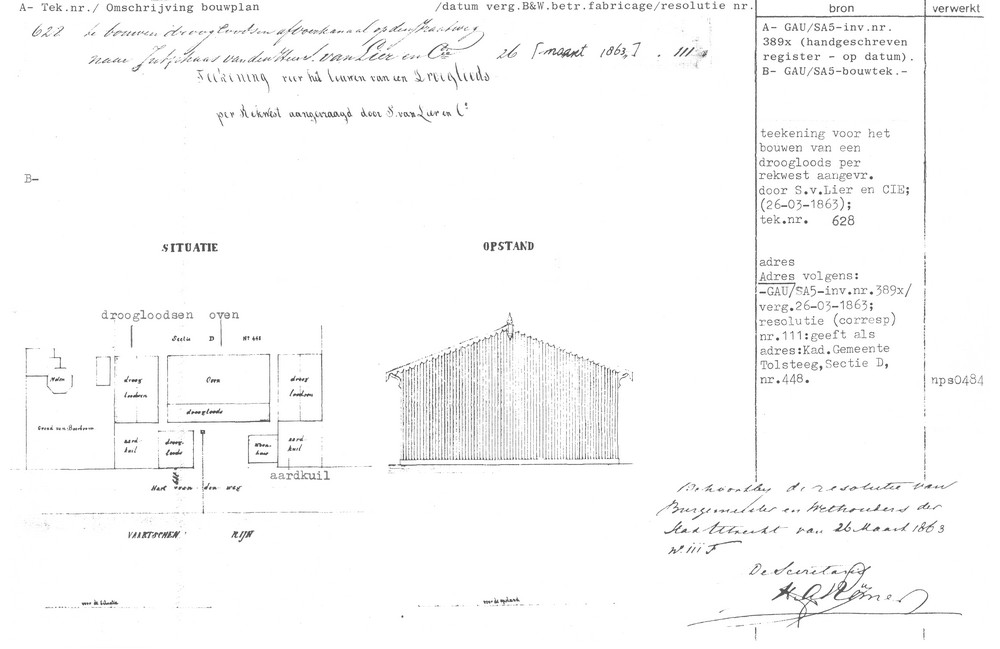 A- Tek.nr./ Omschrijving bouwplan /datum verg.B&W.betr.fabricage/resolutie nr. bron verwerkt
628 te bouwen droogloodsen op den Straatweg
naar Jutphaas van den Heer S. van Lier en Co 26 [maart 1863,] . 111
Teekening voor het bouwen van een Droogloods
per Rekwest aangevraagd door S. van Lier en Cº
A- GAU/SA5-inv.nr.
389x (handgeschreven
register - op datum).
B- GAU/SA5-bouwtek.-
B-
teekening voor het
bouwen van een
droogloods per
rekwest aangevr.
door S.v.Lier en CIE;
(26-03-1863);
tek.nr. 628
SITUATIE OPSTAND
adres
Adres volgens:
-GAU/SA5-inv.nr.389x/
verg.26-03-1863;
resolutie (corresp)
nr.111:geeft als
adres:Kad.Gemeente
Tolsteeg,Sectie D,
nr.448.
nps0484
droogloodsen oven
Sectie D Nº 448
Molen
droog
loodsen
Oven
droog
loodsen
droogloods
Grond van
aard
kuil
droog
loods
Woon
huis
aard
kuil
aardkuil
Hart van den weg
VAARTSCHEN RIJN
Behoort bij de resolutie van
Burgemeester en Wethouders der
Stad Utrecht van 26 Maart 1863
Nº. 111 F
De Secretaris
voor de Situatie
voor de opstand